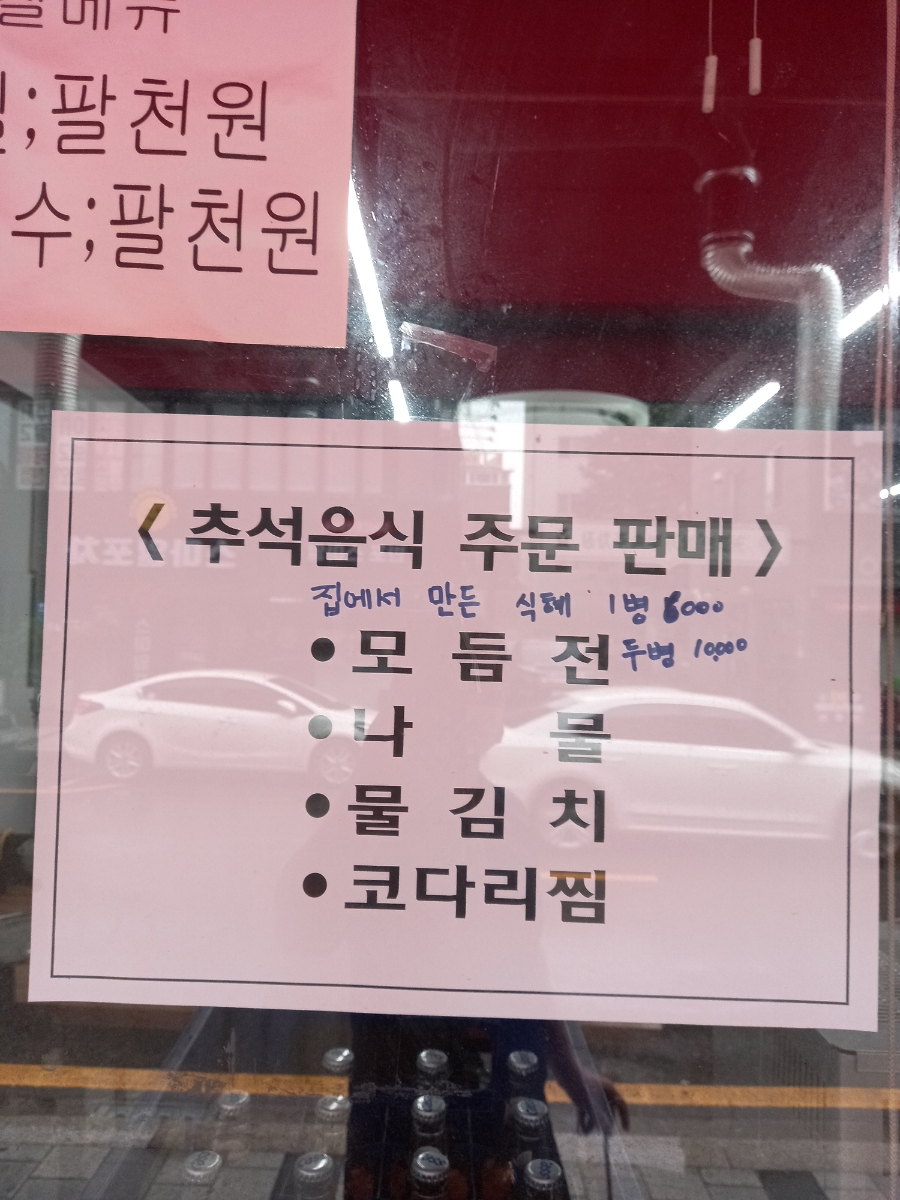 메뉴
;팔천원
수;팔천원
〈 추석음식 주문 판매 〉
집에서 만든 식혜 1병 6000
• 모 듬 전 두병 10,000
• 나 물
• 물 김 치
• 코다리찜